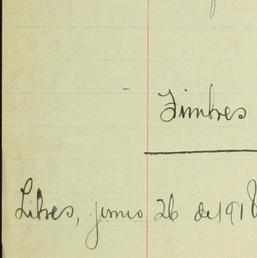 Timbres
Libres, junio 26 de 1918